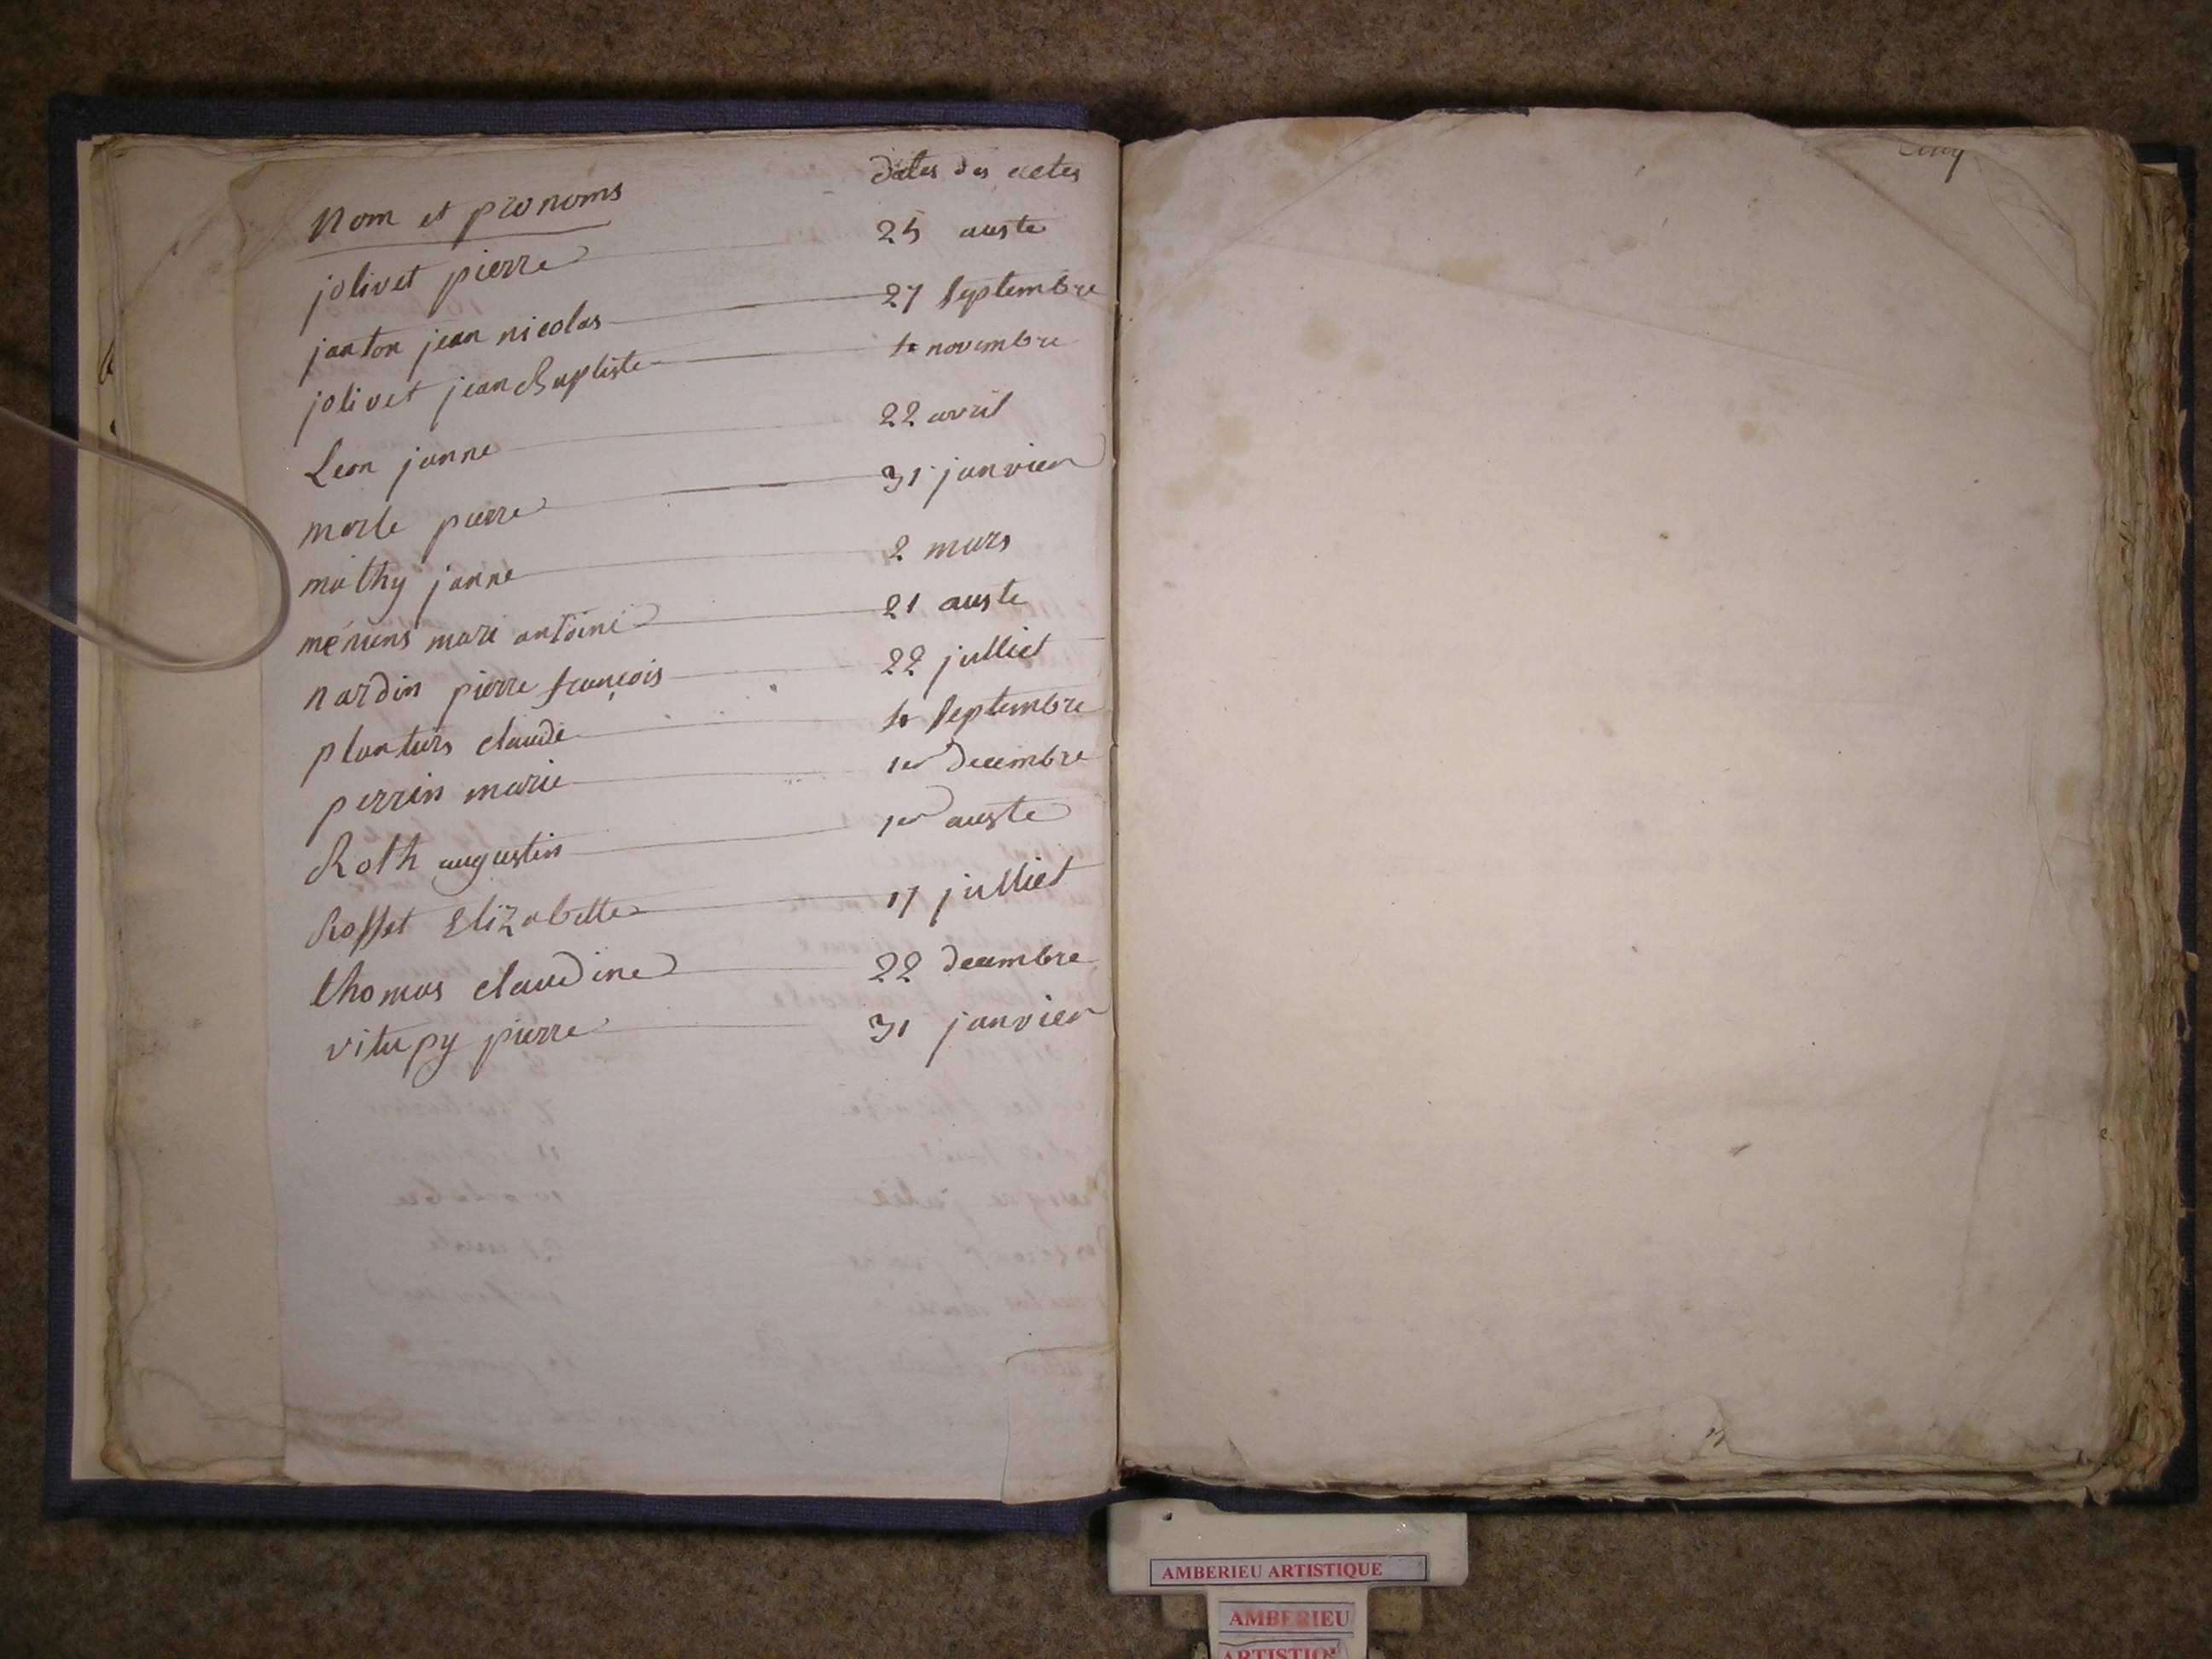 Nom et pronoms dates des actes
jolivet pierre 25 auste
janton jean nicolas 27 Septembre
jolivet jean Baptiste novembre
Leon janne 22 avril
marle pierre 31 janvier
mathy janne 2 mars
mari antoine 21 auste
nardin pierre françois 22 julliet
claude Septembre
perrin marie 1er decembre
Roth augustin 1er auste
Rosset Elizabette 17 julliet
thomas claudine 22 decembre
vitupy pierre 31 janvier
AMBERIEU ARTISTIQUE
AMBERIEU